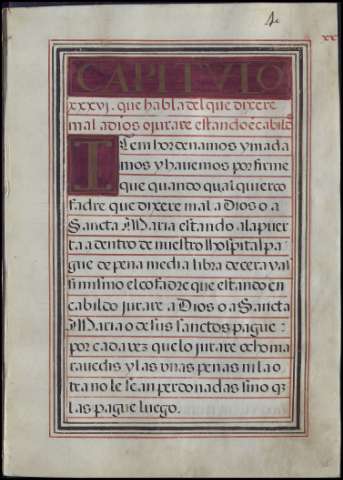 xx
CAPITVLO
xxxvi. que habla del que dixere
mal a dios o jurare estando ẽ cabildo
Item hordenamos y manda
mos y havemos por firme
que quando qual quier co
fadre que dixere mal a Dios o a
Sancta Maria estando a la puer
ta a dentro de nuestro hospital pa
gue de pena media libra de cera y as
si mismo el cofadre que estando en
cabildo jurare a Dios o a Sancta
Maria o de sus sanctos pague:
por cada vez que lo jurare ocho ma
ravedis y las vnas penas ni la o
tra no le sean perdonadas sino q̃
las pague luego.